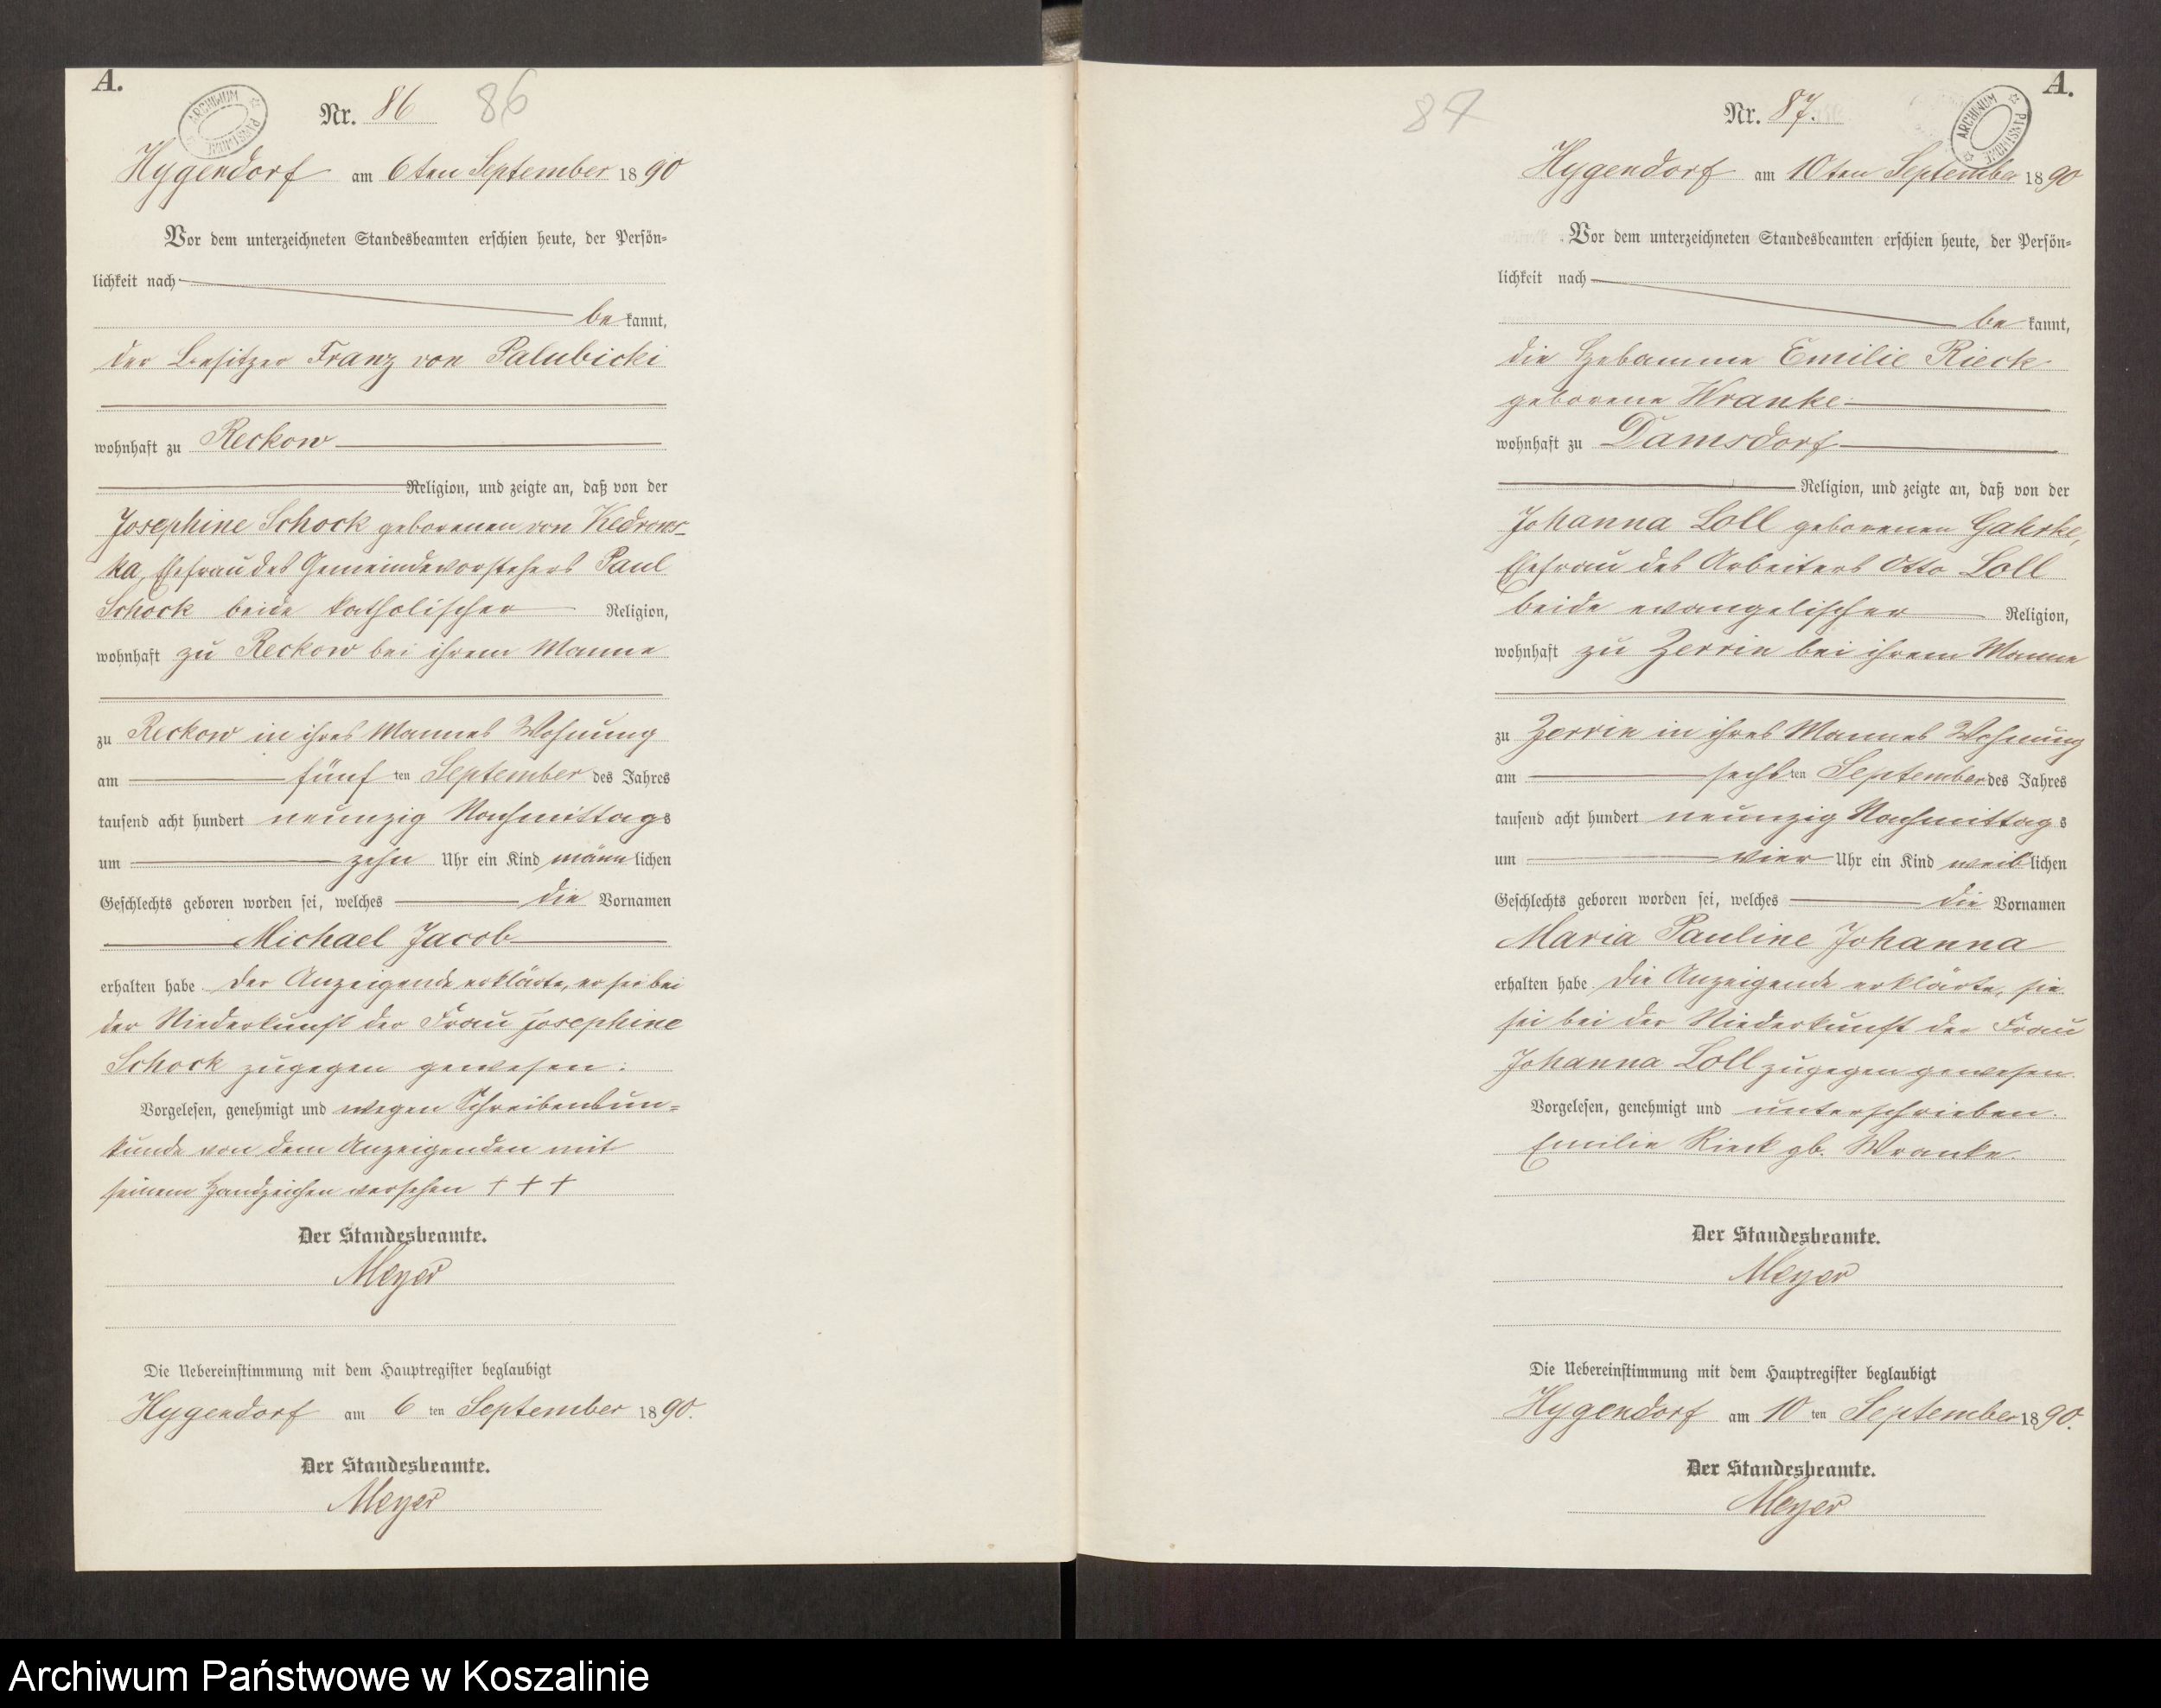 A.
ARCHIWUM PAŃSTWOWE
Nr. 86 86
Hygendorf am 6ten September 1890
Vor dem unterzeichneten Standesbeamten erschien heute, der Persön=
lichkeit nach
bekannt,
der Besitzer Franz von Palubicki
wohnhaft zu Reckow
Religion, und zeigte an, daß von der
Josephine Schock geborenen von Kedrows-
ka, Ehefrau des Gemeindevorstehers Paul
Schock beide katholischer Religion,
wohnhaft zu Reckow bei ihrem Manne
zu Reckow in ihres Mannes Wohnung
am fünf ten September des Jahres
tausend acht hundert neunzig Nachmittags
um zehn Uhr ein Kind männlichen
Geschlechts geboren worden sei, welches die Vornamen
Michael Jacob
erhalten habe. Der Anzeigende erklärte, er sei bei
der Niederkunft der Frau Josephine
Schock zugegen gewesen.
Vorgelesen, genehmigt und wegen Schreibensun=
kunde von dem Anzeigenden mit
seinem Handzeichen versehen + + +
Der Standesbeamte.
Meyer
Die Uebereinstimmung mit dem Hauptregister beglaubigt
Hygendorf am 6 ten September 1890.
Der Standesbeamte.
Meyer
A.
ARCHIWUM PAŃSTWOWE
87 Nr. 87.
Hygendorf am 10ten September 1890
Vor dem unterzeichneten Standesbeamten erschien heute, der Persön=
lichkeit nach
bekannt,
die Hebamme Emilie Rieck
geborene Wranke
wohnhaft zu Damsdorf
Religion, und zeigte an, daß von der
Johanna Loll geborenen Gahrke,
Ehefrau des Arbeiters Otto Loll
beide evangelischer Religion,
wohnhaft zu Zerrin bei ihrem Manne
zu Zerrin in ihres Mannes Wohnung
am sechsten September des Jahres
tausend acht hundert neunzig Nachmittags
um vier Uhr ein Kind weiblichen
Geschlechts geboren worden sei, welches die Vornamen
Maria Pauline Johanna
erhalten habe. Die Anzeigende erklärte, sie
sei bei der Niederkunft der Frau
Johanna Loll zugegen gewesen.
Vorgelesen, genehmigt und unterschrieben.
Emilie Rieck gb. Wranke.
Der Standesbeamte.
Meyer
Die Uebereinstimmung mit dem Hauptregister beglaubigt
Hygendorf am 10 ten September 1890.
Der Standesbeamte.
Meyer
Archiwum Państwowe w Koszalinie